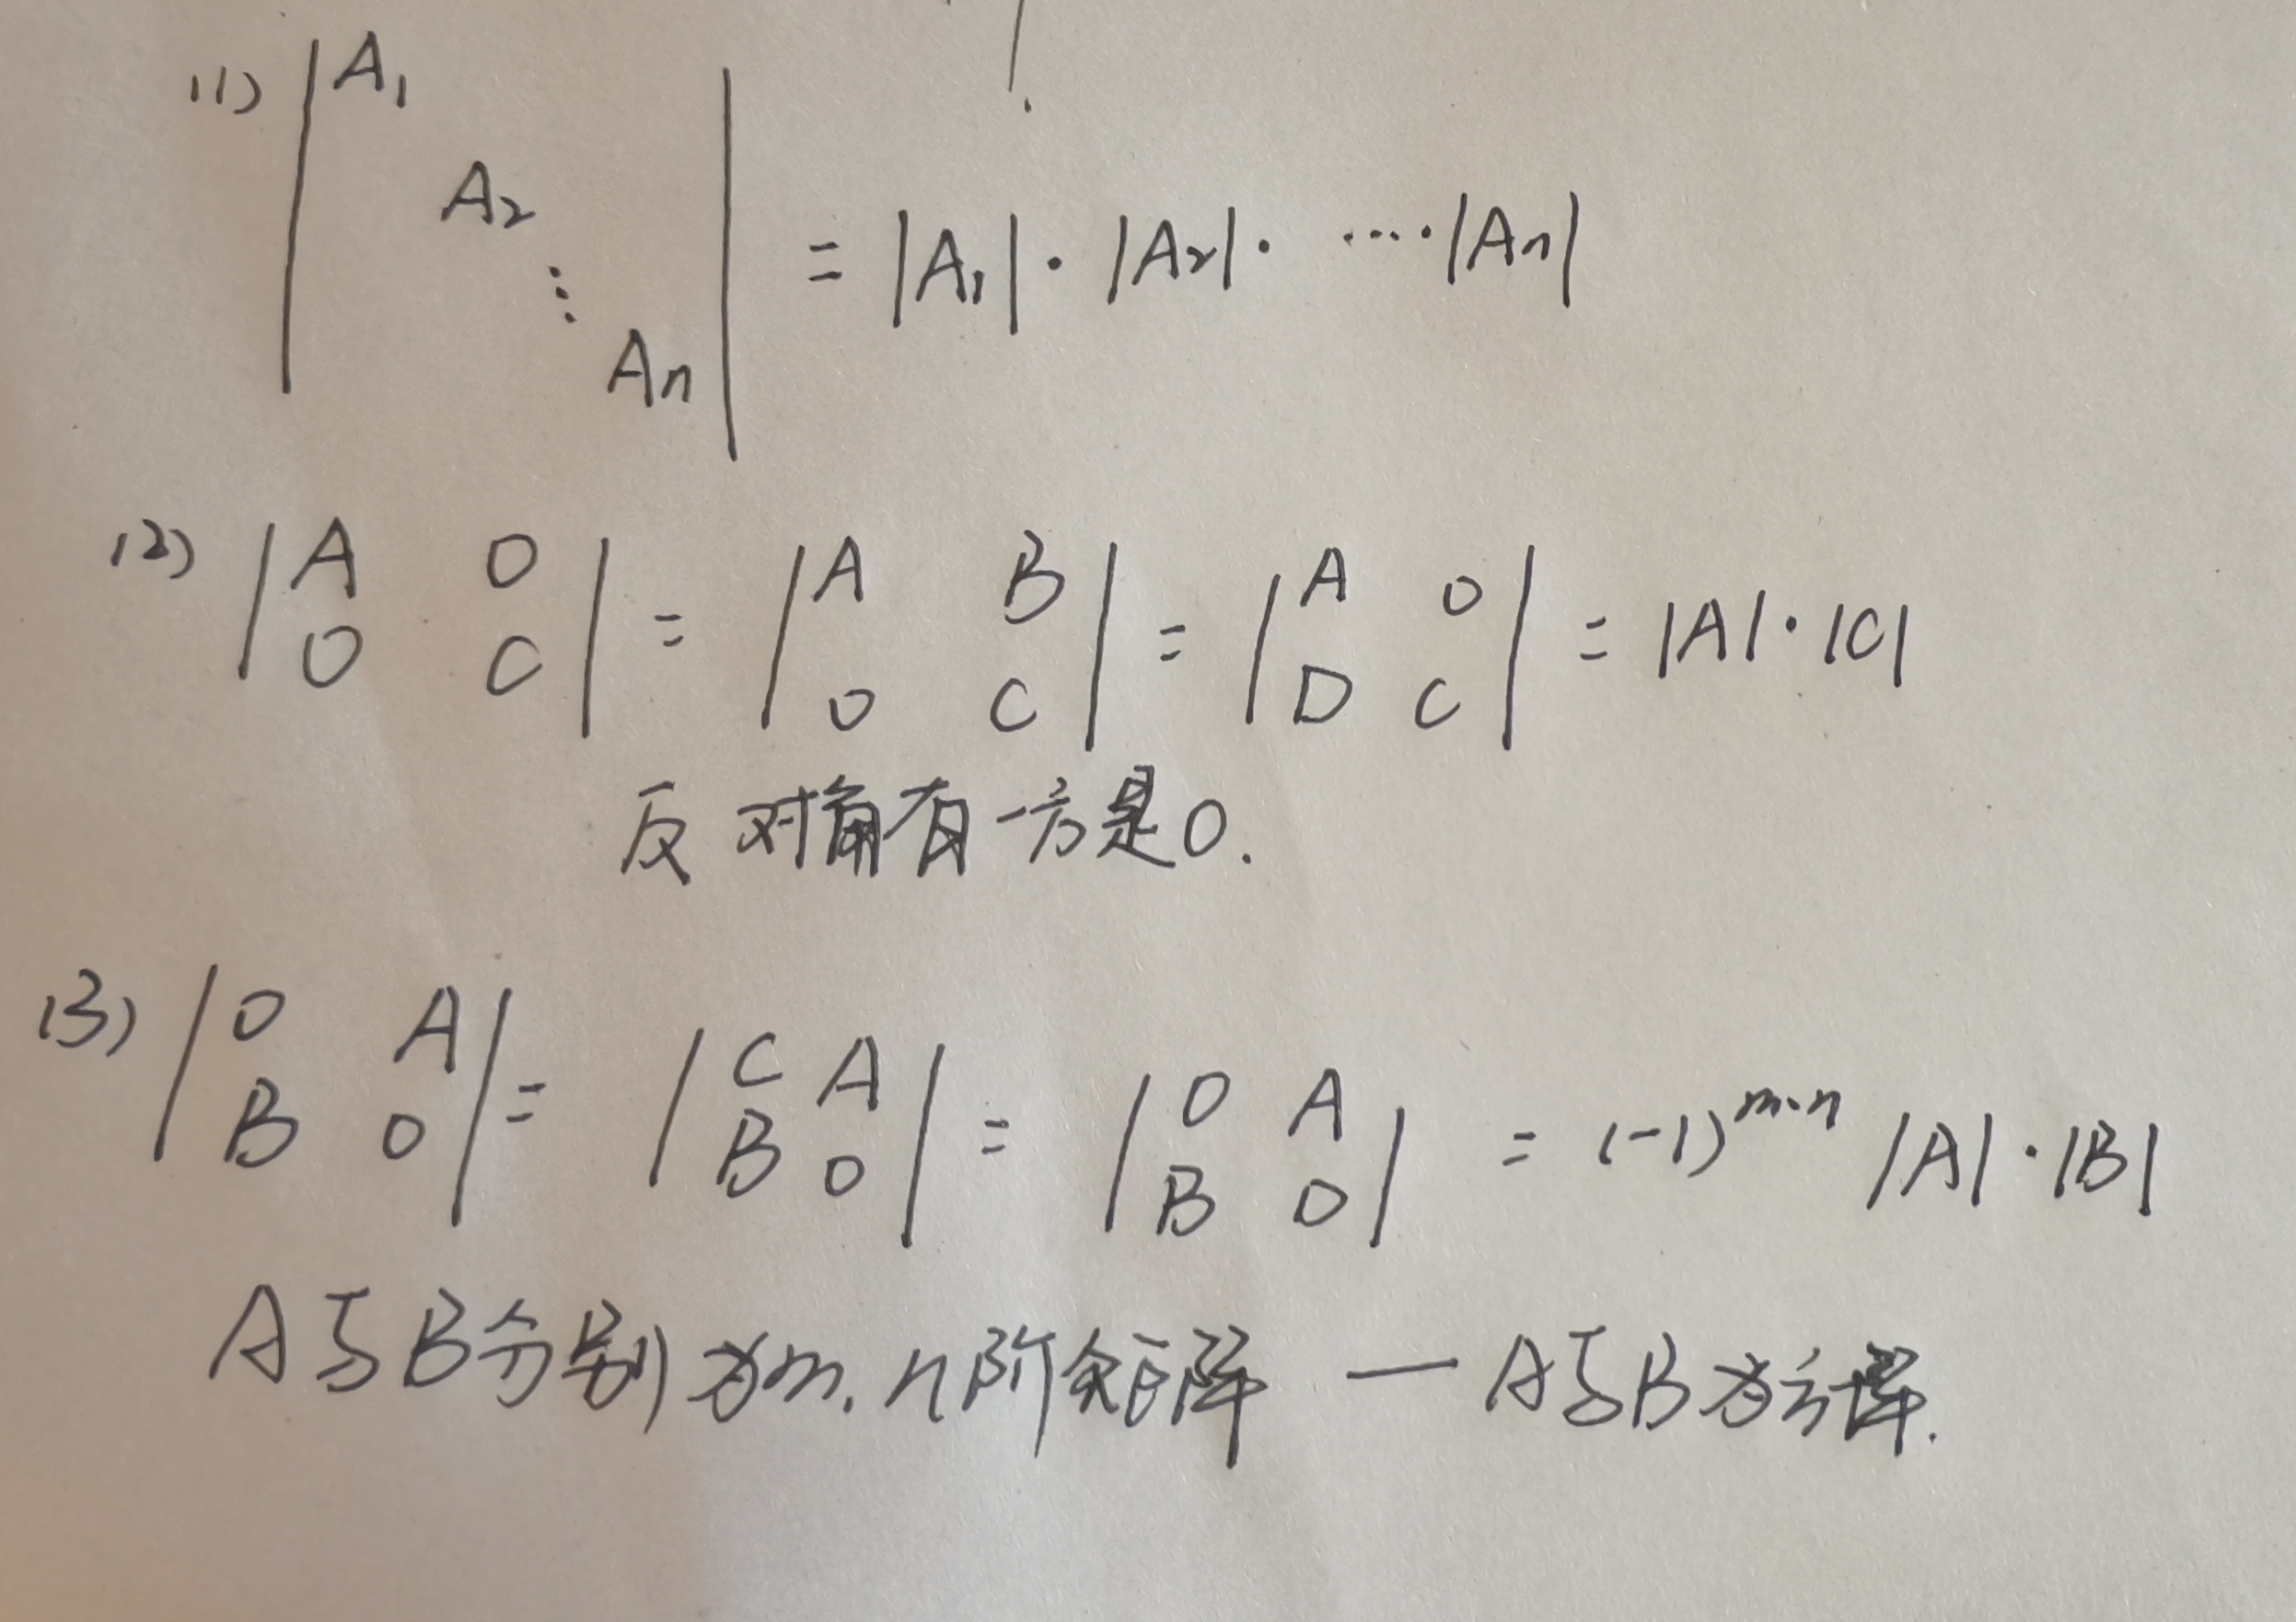 (1) | A₁ A₂ ⋱ Aₙ | = |A₁| · |A₂| · ···· |Aₙ|
(2) | A 0 ; 0 C | = | A B ; 0 C | = | A 0 ; D C | = |A| · |C|
反对角有一方是0.
(3) | 0 A ; B 0 | = | C A ; B 0 | = | 0 A ; B D | = (-1)^{m·n} |A| · |B|
A与B分别为m.n阶矩阵 — A与B为方阵.